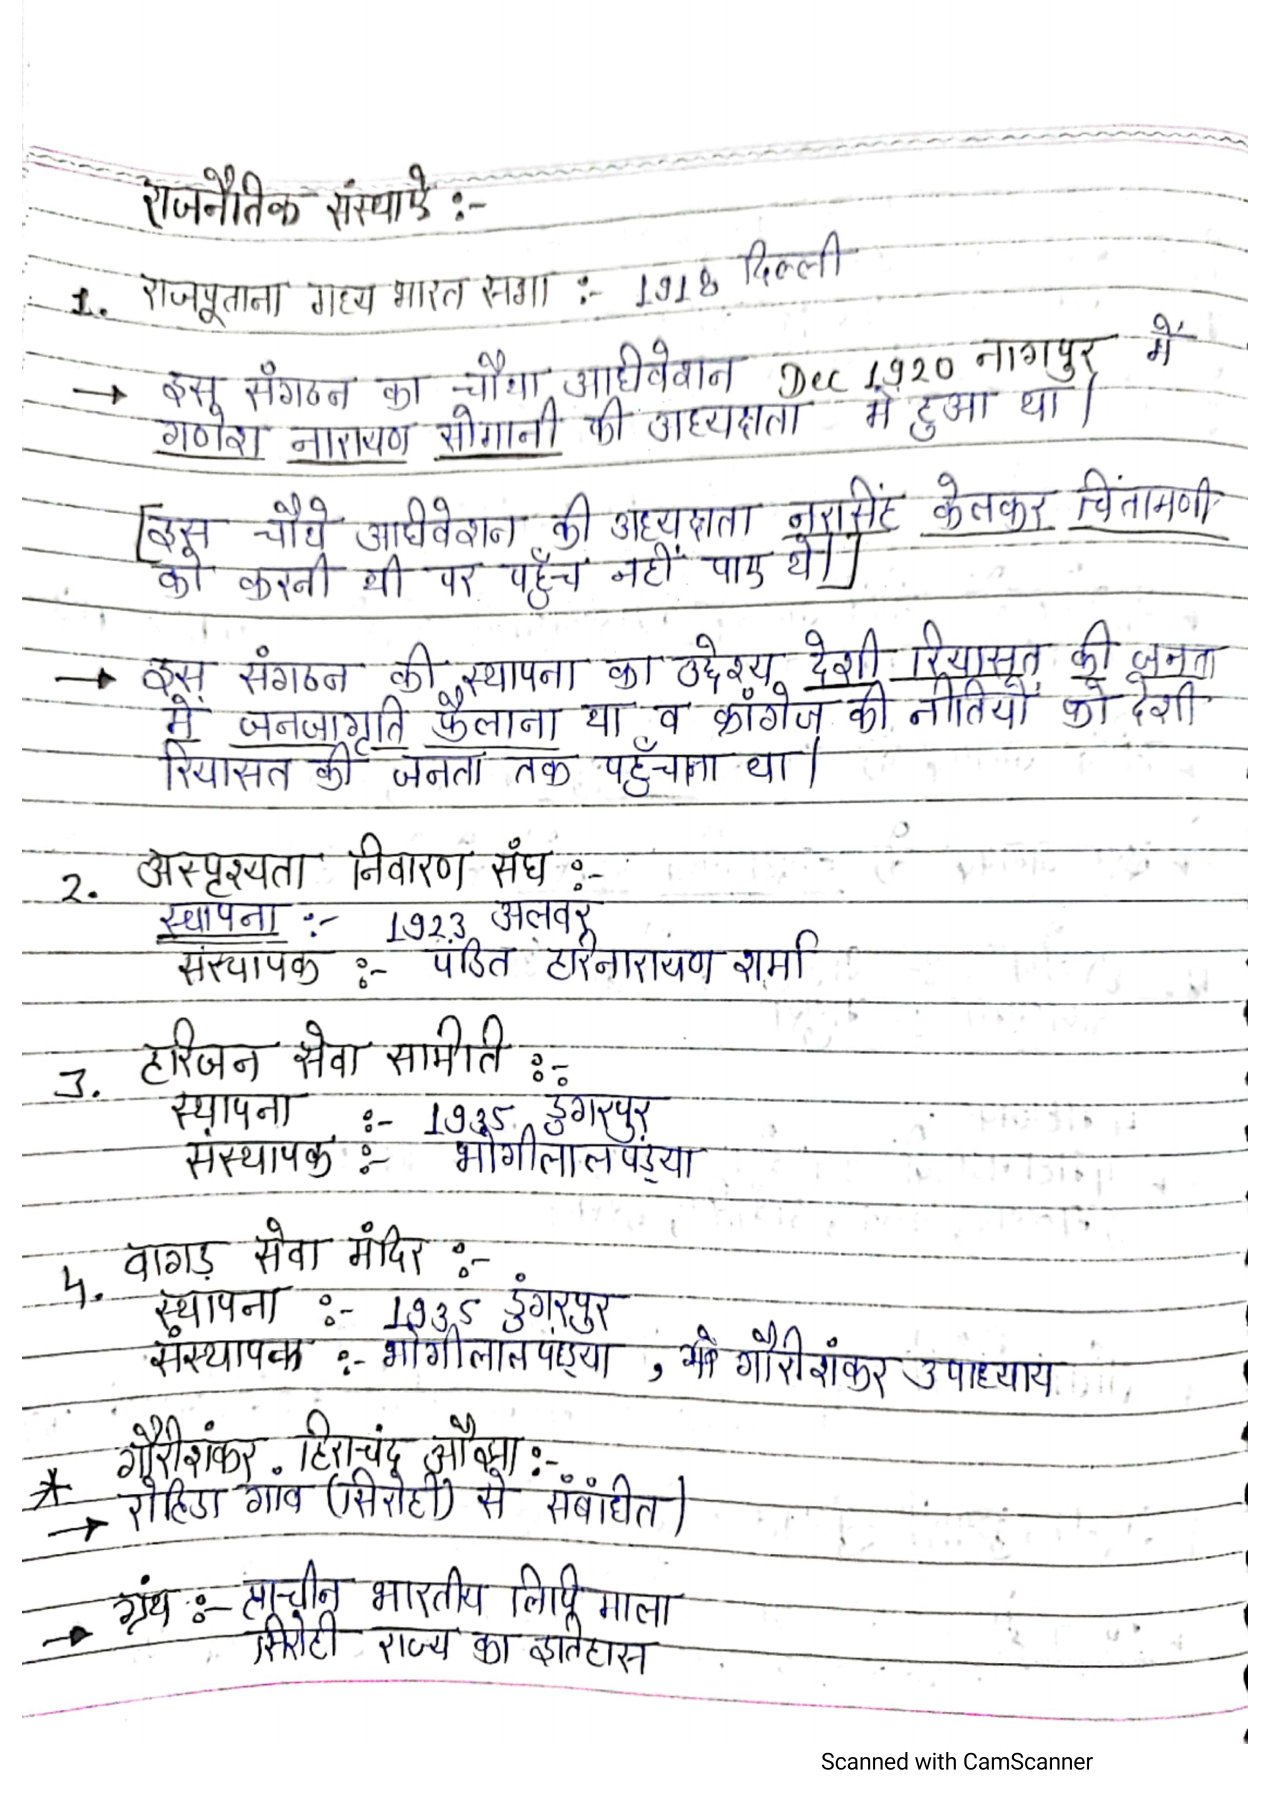 राजनैतिक संस्थाऐ :-
1. राजपूताना मध्य भारत सभा :- 1918 दिल्ली
→ इस संगठन का चौथा अधिवेशन Dec 1920 नागपुर में
गणेश नारायण सोगानी की अध्यक्षता में हुआ था।
[इस चौथे अधिवेशन की अध्यक्षता नरसिंह केलकर चिंतामणी
को करनी थी पर पहुँच नहीं पाए थे।]
→ इस संगठन की स्थापना का उद्देश्य देशी रियासत की जनता
में जनजागृति फैलाना था व काँग्रेज की नीतियों को देशी
रियासत की जनता तक पहुँचाना था।
2. अस्पृश्यता निवारण संघ :-
स्थापना :- 1923 अलवर
संस्थापक :- पंडित हरिनारायण शर्मा
3. हरिजन सेवा समिति :-
स्थापना :- 1935 डुंगरपुर
संस्थापक :- भोगीलाल पंड्या
4. वागड़ सेवा मंदिर :-
स्थापना :- 1935 डुंगरपुर
संस्थापक :- भोगीलाल पंड्या , गौरीशंकर उपाध्याय
* गौरीशंकर हिराचंद औझा :-
→ रोहिडा गांव (सिरोही) से संबंधित।
→ ग्रंथ :- प्राचीन भारतीय लिपि माला
सिरोही राज्य का इतिहास
Scanned with CamScanner